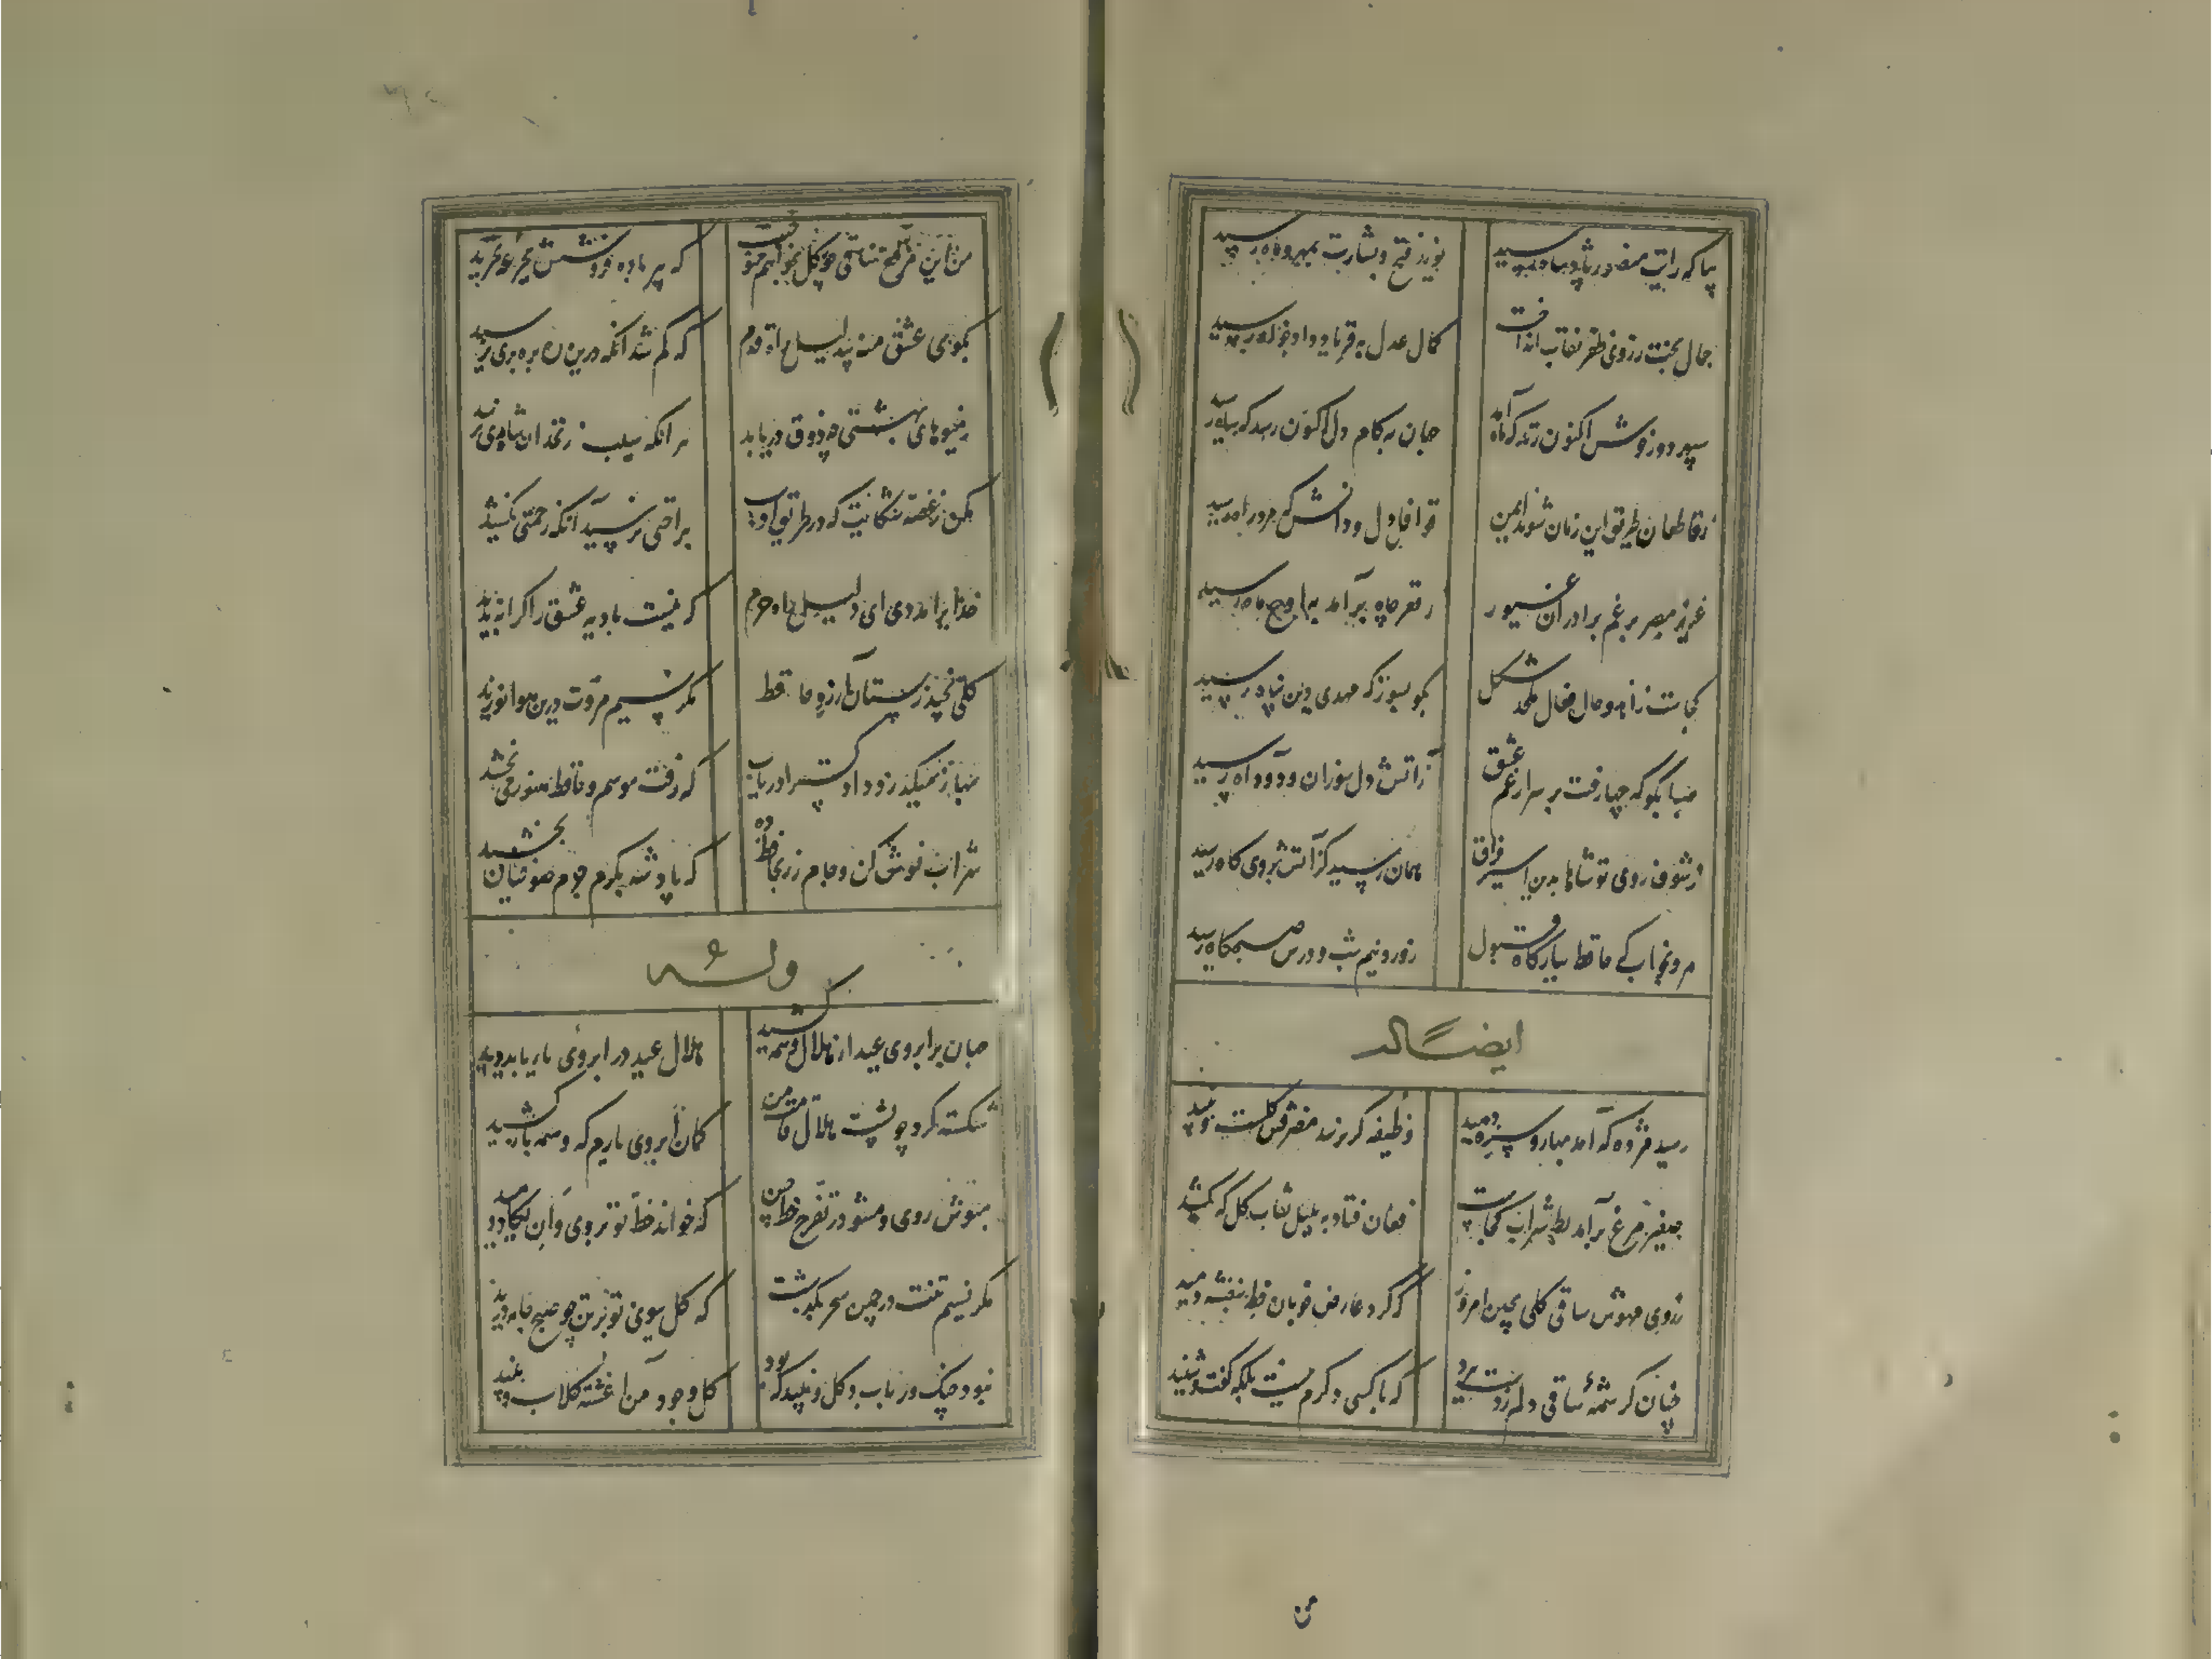 بیا که رایت منصور پادشاه رسید
نوید فتح و بشارت بمهر و ماه رسید
جمال بخت ز روی ظفر نقاب انداخت
کمال عدل به فریاد دادخواه رسید
سپهر دور خوش اکنون زند که ماه آمد
جهان به کام دل اکنون رسد که شاه رسید
ز قاطعان طریق این زمان شوند ایمن
قوافل دل و دانش که مرد راه رسید
عزیز مصر برغم برادران غیور
ز قعر چاه برآمد به اوج ماه رسید
کجاست
بگو بسوز که مهدی دین پناه رسید
صبا بگو که چها رفت بر سرم از غم عشق
ز آتش دل سوزان و دود آه رسید
ز شوق روی تو شاها بدین اسیر فراق
همان رسید کز آتش بروی کاه رسید
مرو بخواب که حافظ ببارگاه قبول
ز ورد نیم شب و درس صبحگاه رسید
ایضاً له
رسید مژده که آمد بهار و سبزه دمید
وظیفه گر برسد مصرفش گلست و نبید
صفیر مرغ برآمد بط شراب کجاست
فغان فتاد به بلبل نقاب گل که کشید
ز روی مهوش ساقی گلی بچین امروز
که گرد عارض خوبان خط بنفشه دمید
چنان کرشمه ساقی دلم ز دست ببرد
که با کسی دگرم نیست بلکه گفت و شنید
من
من این مرقع چو گل بخواهم سوخت
که پیر باده فروشش بجرعه نخرید
بکوی عشق منه بی دلیل راه قدم
که گم شد آنکه درین ره برهبری نرسید
ز میوهای بهشتی چه ذوق دریابد
هر آنکه سیب زنخدان شاهدی نگزید
مکن ز غصه شکایت که در طریق ادب
براحتی نرسید آنکه زحمتی نکشید
خدایرا مددی ای دلیل راه حرم
که نیست بادیه عشق را کرانه پدید
گلی نچید ز بستان آرزو حافظ
مگر نسیم مروت درین هوا نوزید
بهار میگذرد دادگسترا دریاب
که رفت موسم و حافظ هنوز می نچشید
شراب نوش کن و جام زر بحافظ ده
که پادشه بکرم جرم صوفیان بخشید
وله
جهان بر ابروی عید از هلال وسمه کشید
هلال عید در ابروی یار باید دید
شکسته کرد چو پشت هلال قامت من
کمان ابروی یارم که وسمه باز کشید
بپوش روی و مشو در تفرج خط من
که خواند خط تو بر روی و ان یکاد دمید
مگر نسیم تنت در چمن سحر بگذشت
که گل ببوی تو بر تن چو صبح جامه درید
نبود چنگ و رباب و گل و نبید که بود
گل وجود من آغشته گلاب و نبید